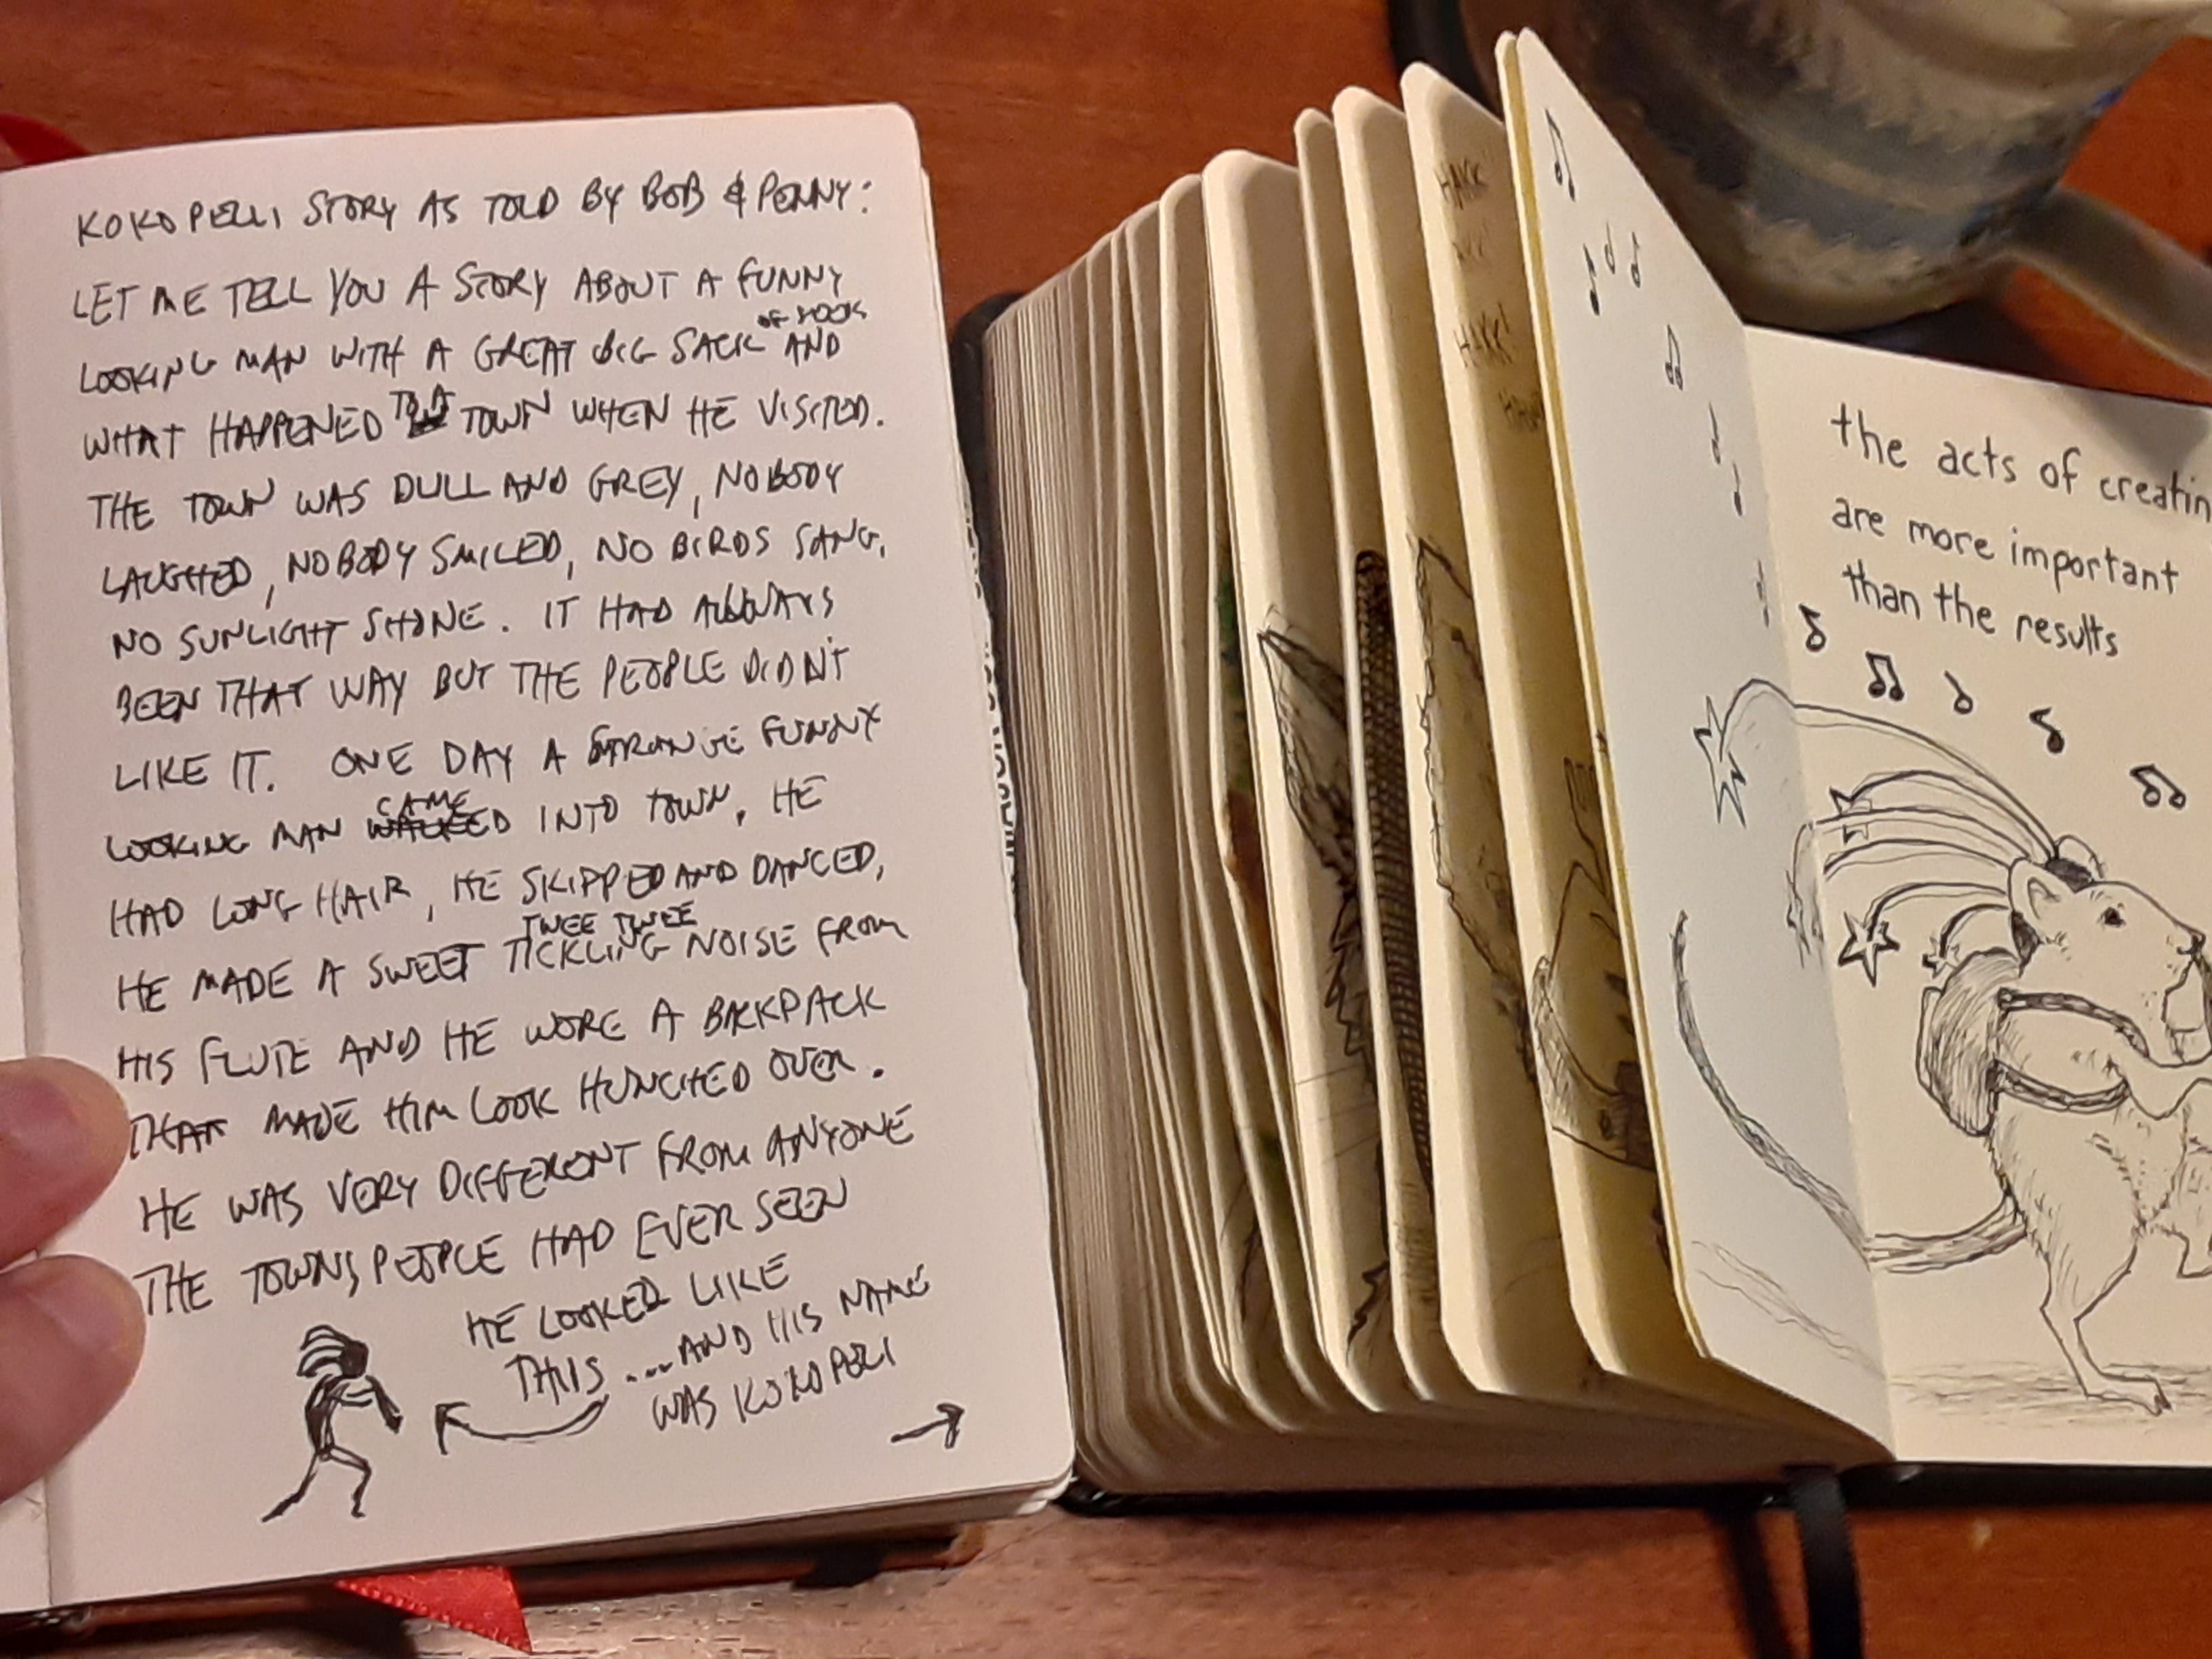 KOKOPELLI STORY AS TOLD BY BOB & PENNY:
LET ME TELL YOU A STORY ABOUT A FUNNY
LOOKING MAN WITH A GREAT BIG SACK AND
WHAT HAPPENED TO A TOWN WHEN HE VISITED.
THE TOWN WAS DULL AND GREY, NOBODY
LAUGHED, NOBODY SMILED, NO BIRDS SANG,
NO SUNLIGHT SHONE. IT HAD ALWAYS
BEEN THAT WAY BUT THE PEOPLE DIDN'T
LIKE IT. ONE DAY A STRANGE FUNNY
CAME
LOOKING MAN WALKED INTO TOWN, HE
HAD LONG HAIR, HE SKIPPED AND DANCED,
TWEE TWEE
HE MADE A SWEET TICKLING NOISE FROM
HIS FLUTE AND HE WORE A BACKPACK
THAT MADE HIM LOOK HUNCHED OVER.
HE WAS VERY DIFFERENT FROM ANYONE
THE TOWNSPEOPLE HAD EVER SEEN
HE LOOKED LIKE
THIS ....AND HIS NAME
WAS KOKOPELI
HAKK!
the acts of creatin
are more important
than the results